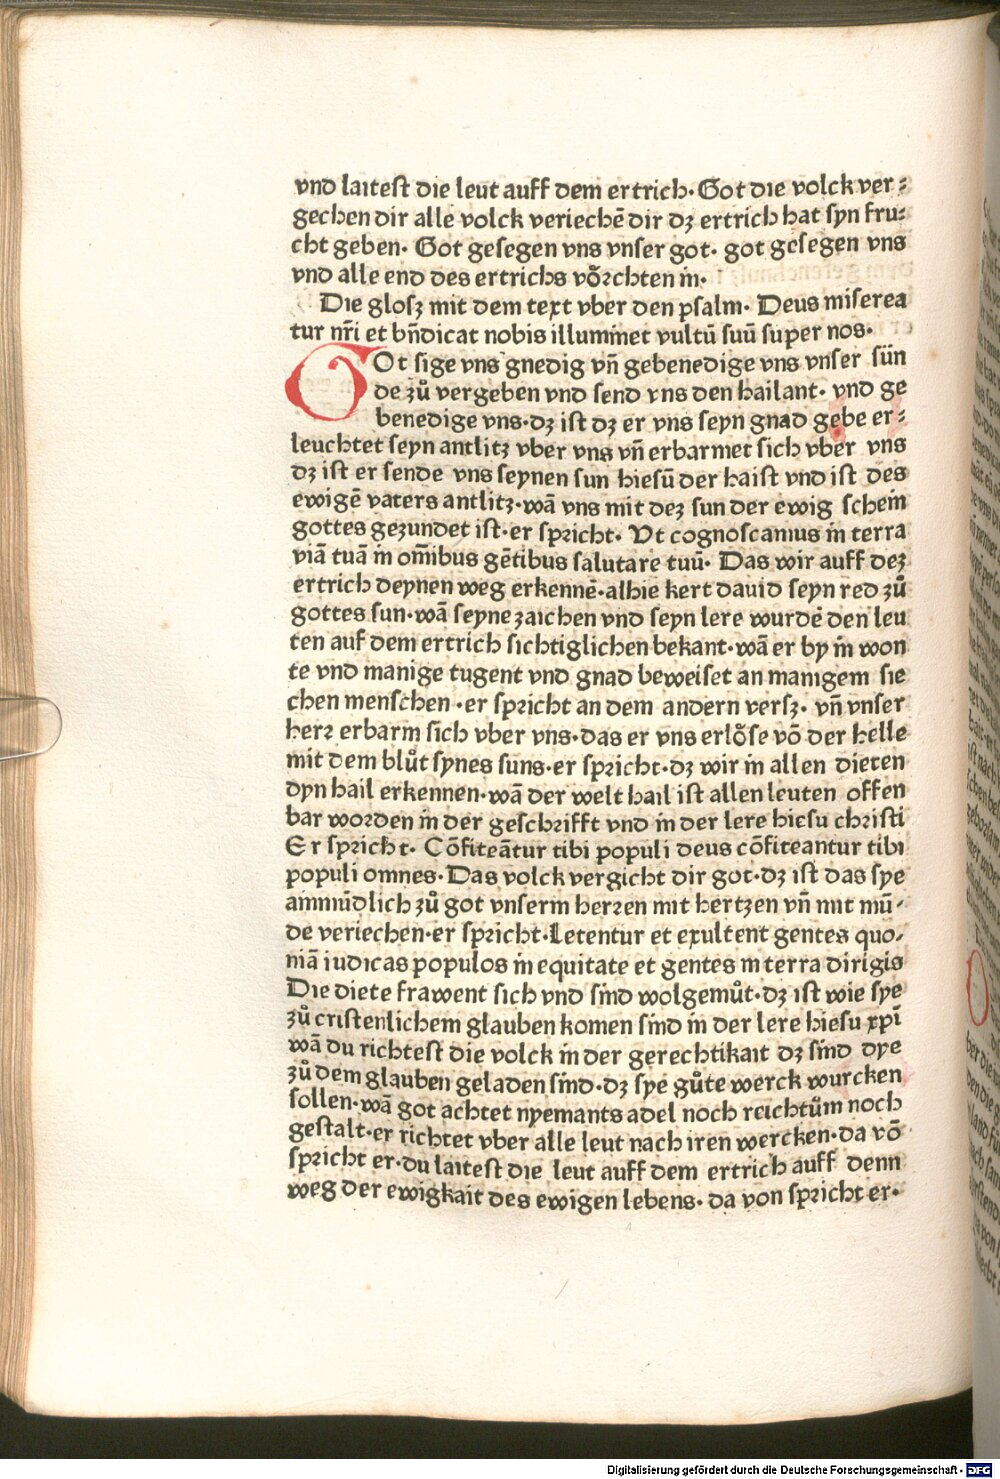 vnd laitest die leut auff dem ertrich· Got die volck ver⸗
gechen dir alle volck veriechē dir dz ertrich hat syn fru⸗
cht geben· Got gesegen vns vnser got· got gesegen vns
vnd alle end des ertrichs võrchten in·
Die glosz mit dem text vber den psalm· Deus miserea
tur nr̄i et bn̄dicat nobis illuminet vultū suū super nos·
GOt sige vns gnedig vn̄ gebenedige vns vnser sün
de zů vergeben vnd send vns den hailant· vnd ge
benedige vns·dz ist dz er vns seyn gnad gebe er⸗
leuchtet seyn antlitz vber vns vn̄ erbarmet sich vber vns
dz ist er sende vns seynen sun hiesū der haist vnd ist des
ewigē vaters antlitz·wā vns mit dez sun der ewig schein
gottes gezundet ist·er spricht· Vt cognoscamus in terra
viā tuā in om̄ibus gētibus salutare tuū· Das wir auff dez
ertrich deynen weg erkennē·alhie kert dauid seyn red zů
gottes sun·wā seyne zaichen vnd seyn lere wurdē den leu
ten auf dem ertrich sichtiglichen bekant·wā er by in̄ won
te vnd manige tugent vnd gnad beweiset an manigem sie
chen menschen ·er spricht an dem andern versz· vn̄ vnser
herr erbarm sich vber vns·das er vns erlõse vō der helle
mit dem blůt synes suns·er spricht·dz wir in allen dieten
dyn hail erkennen·wā der welt hail ist allen leuten offen
bar worden in der geschrifft vnd in der lere hiesu christi
Er spricht· Cōfiteātur tibi populi deus cōfiteantur tibi
populi omnes·Das volck vergicht dir got·dz ist das sye
ainmūdlich zů got vnserm herzen mit hertzen vn̄ mit mū⸗
de veriechen·er spricht·Letentur et exultent gentes quo⸗
niā iudicas populos in equitate et gentes in terra dirigis
Die diete frawent sich vnd sind wolgemůt·dz ist wie sye
zů cristenlichem glauben komen sind in der lere hiesu xpī
wā du richtest die volck in der gerechtikait dz sind dye
zů dem glauben geladen sind·dz sye gůte werck wurcken
sollen·wā got achtet nyemants adel noch reichtům noch
gestalt·er richtet vber alle leut nach iren wercken·da vō
spricht er·du laitest die leut auff dem ertrich auff denn
weg der ewigkait des ewigen lebens· da von spricht er·
Digitalisierung gefördert durch die Deutsche Forschungsgemeinschaft · DFG